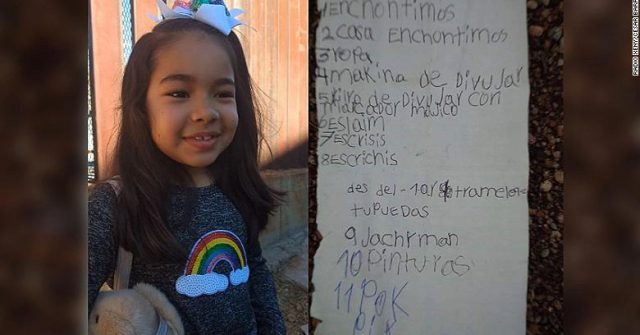 1 Enchontimos
2 casa Enchontimos
3 ropa
4 makina de Divujar
5 Kiro de Divujar con
marcador majico
6 Eslaim
7 Escrisis
8 Escrichis
des del-10 $ tramelo
tupuedas
9 Jachrman
10 Pinturas
11 Pok
RADIO XENY/CESAR BARRON